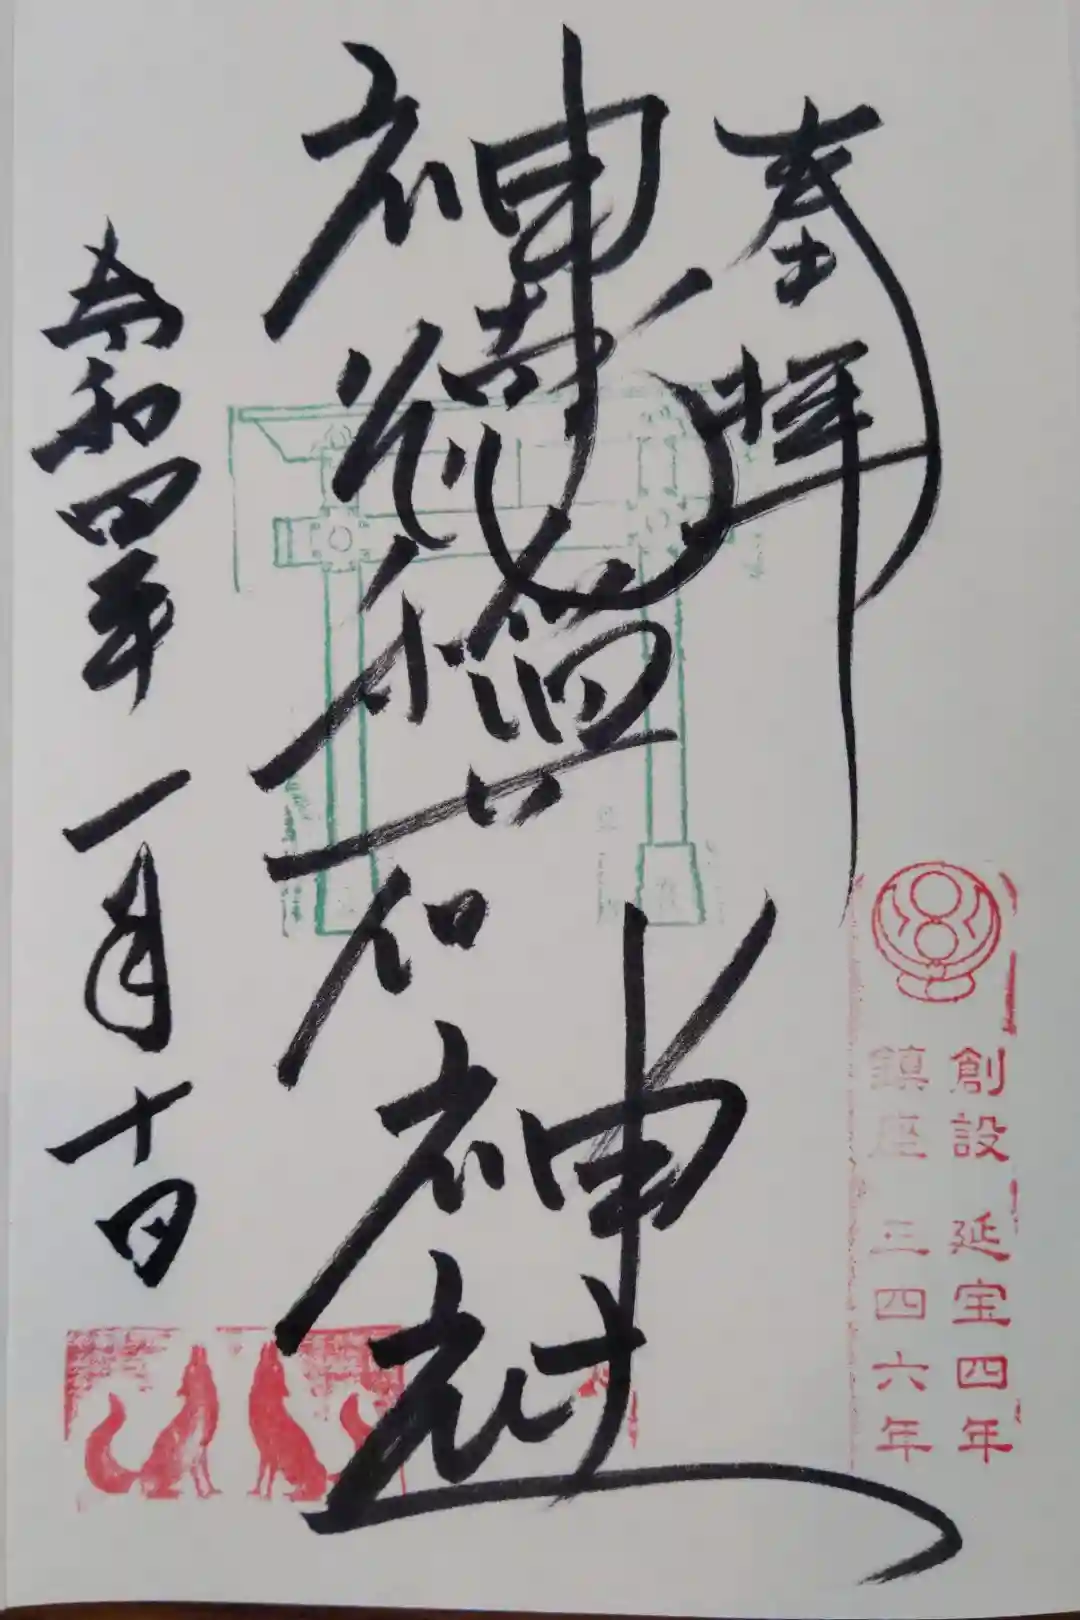 奉拝
神徳稲荷神社
令和四年 一月十日
創設 延宝四年
鎮座 三四六年